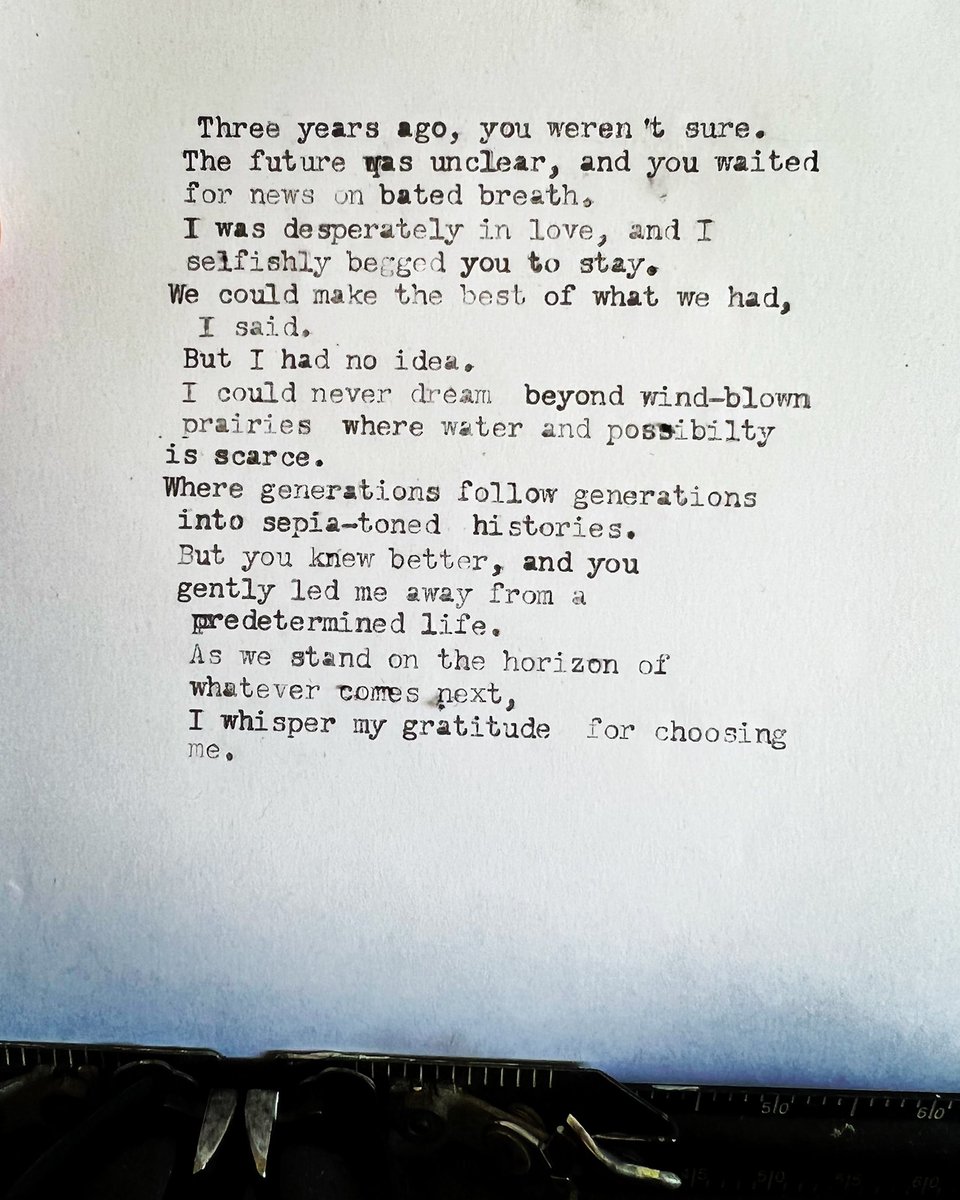 Three years ago, you weren't sure.
The future was unclear, and you waited
for news on bated breath.
I was desperately in love, and I
selfishly begged you to stay.
We could make the best of what we had,
I said.
But I had no idea.
I could never dream beyond wind-blown
prairies where water and possibilty
is scarce.
Where generations follow generations
into sepia-toned histories.
But you knew better, and you
gently led me away from a
predetermined life.
As we stand on the horizon of
whatever comes next,
I whisper my gratitude for choosing
me.
50 60